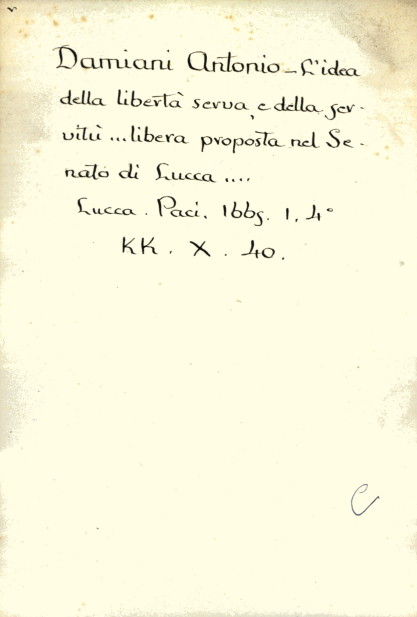 Damiani Antonio - L'idea
della libertà serva, e della ser-
vitù ... libera proposta nel Se-
nato di Lucca ....
Lucca. Paci. 1665. 1, 4°
KK. X. 40.
C